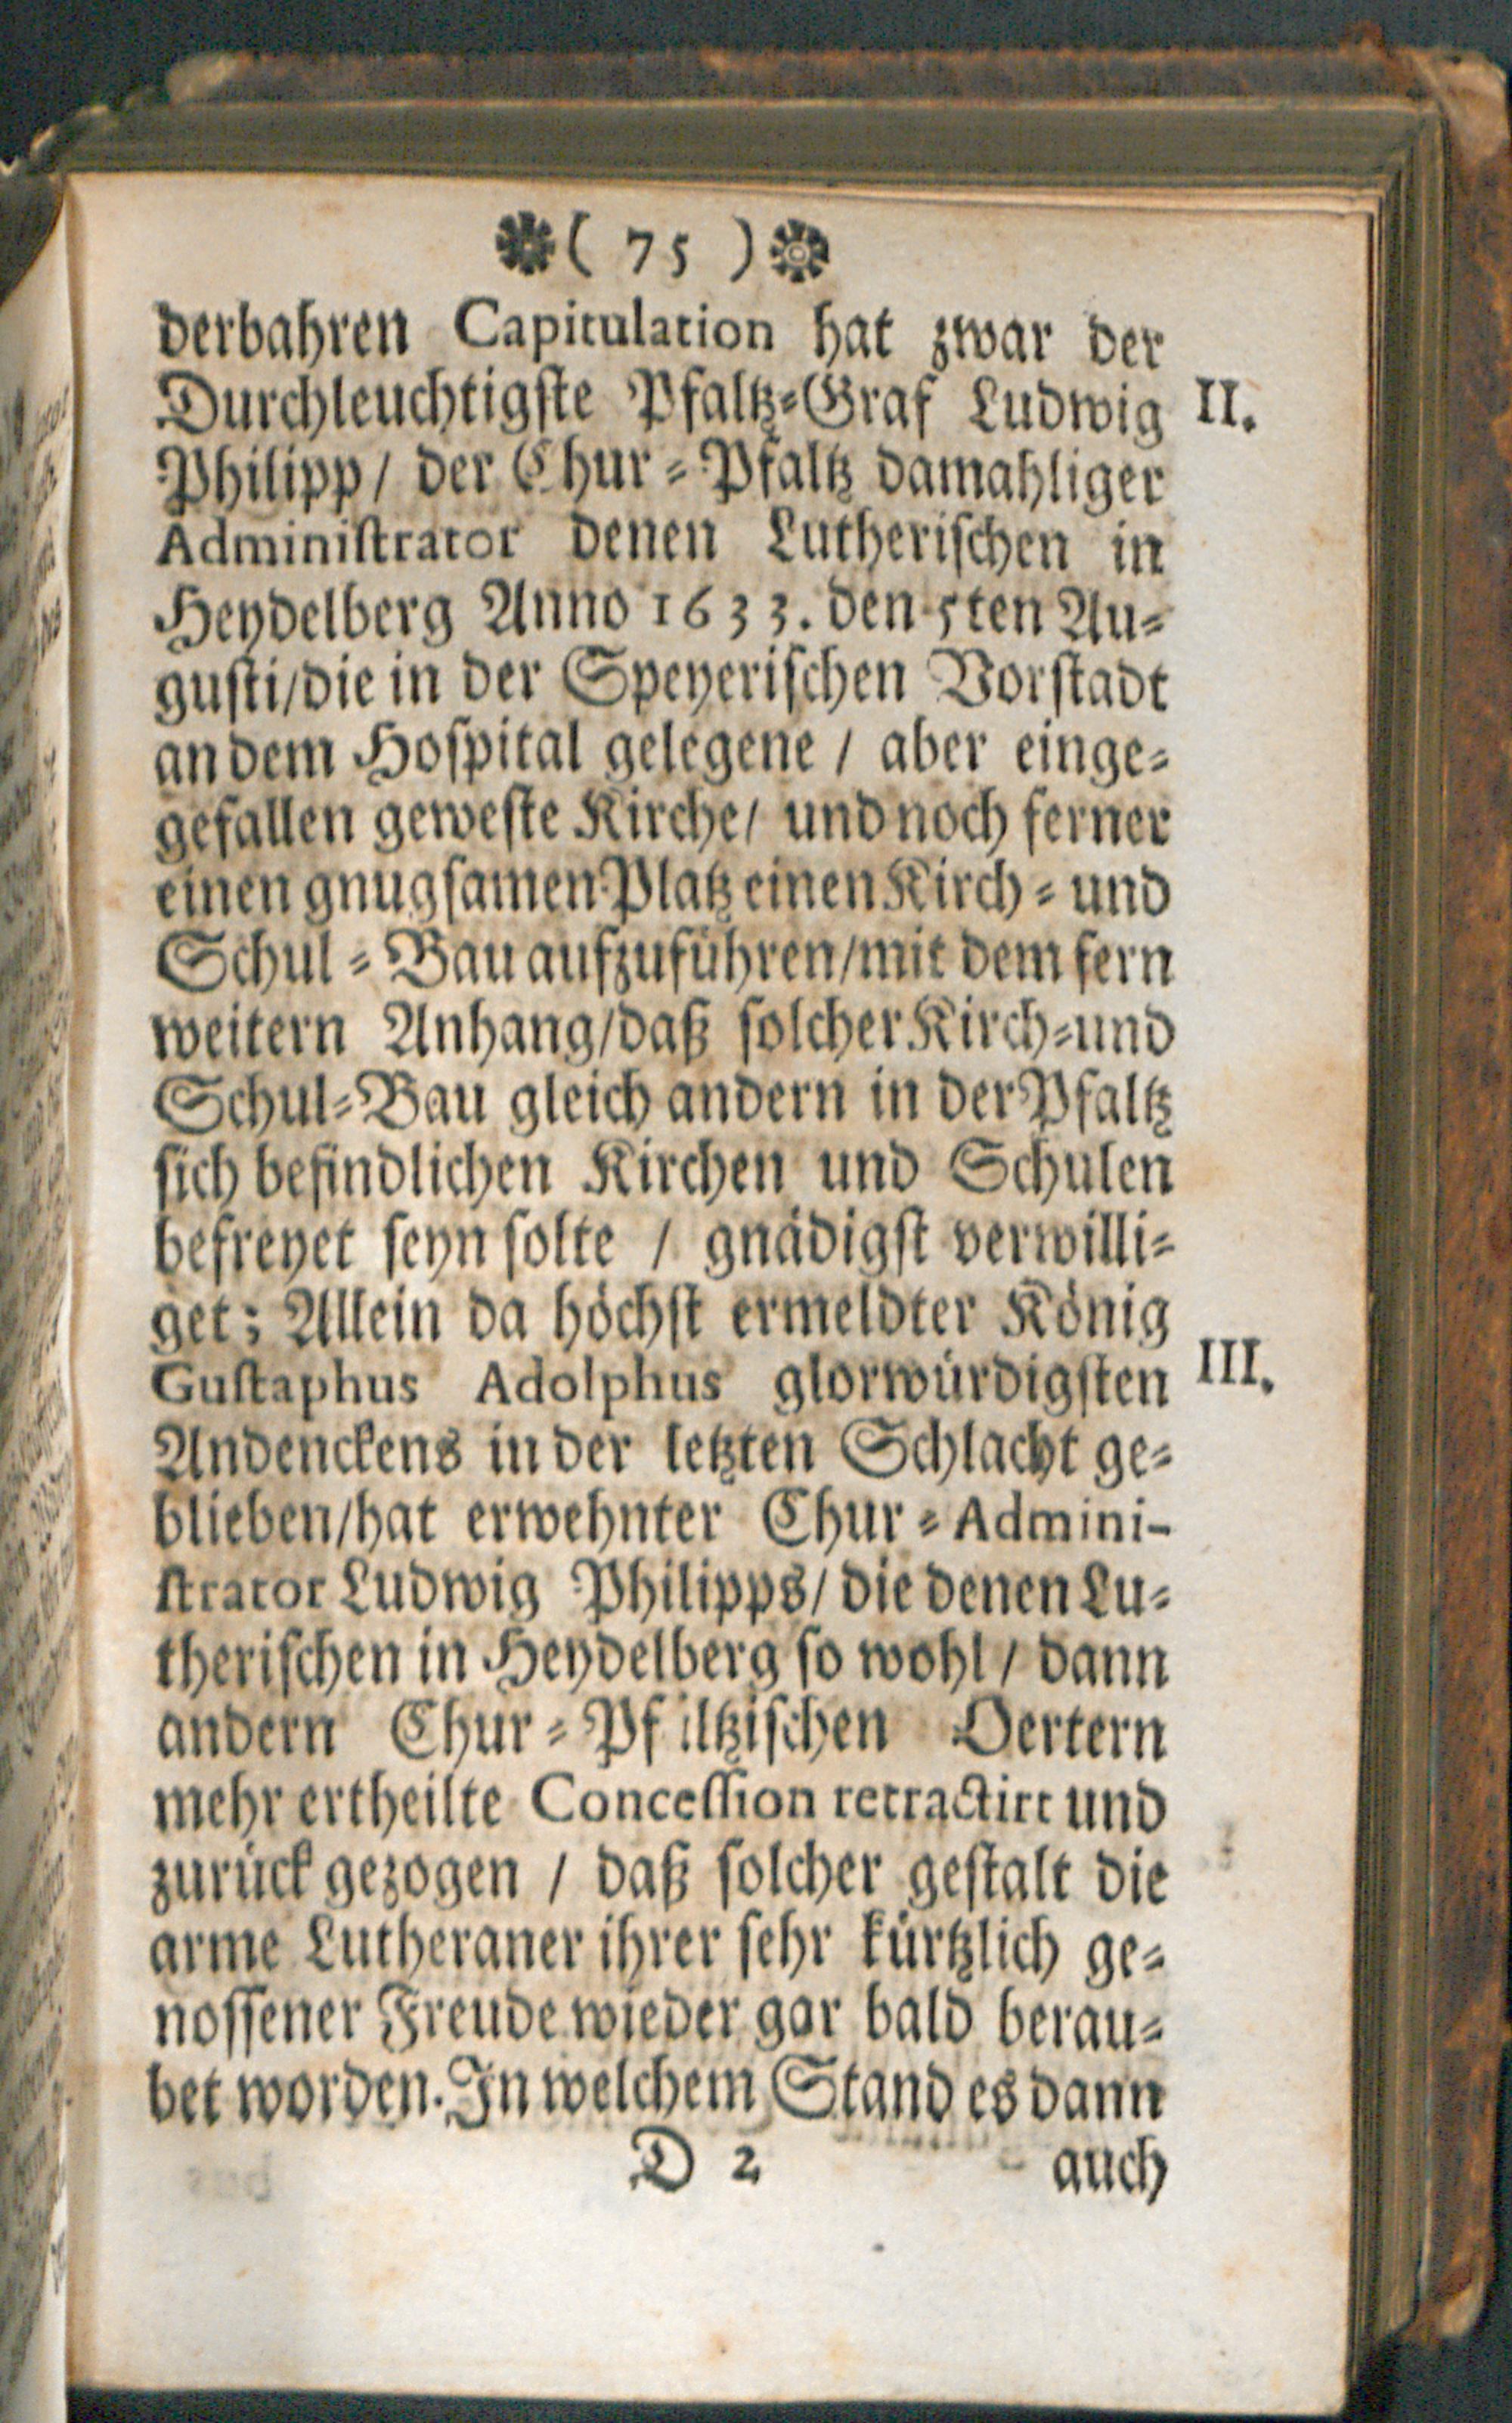 ( 75 )
derbahren Capitulation hat zwar der
Durchleuchtigste Pfaltz-Graf Ludwig II.
Philipp/ der Chur-Pfaltz damahliger
Administrator denen Lutherischen in
Heydelberg Anno 1633. den 5ten Au-
gusti/die in der Speyerischen Vorstadt
an dem Hospital gelegene / aber einge-
gefallen geweste Kirche/ und noch ferner
einen gnugsamen Platz einen Kirch- und
Schul-Bau aufzuführen/mit dem fern
weitern Anhang/daß solcher Kirch-und
Schul-Bau gleich andern in der Pfaltz
sich befindlichen Kirchen und Schulen
befreyet seyn solte / gnädigst verwilli-
get; Allein da höchst ermeldter König
Gustaphus Adolphus glorwürdigsten III.
Andenckens in der letzten Schlacht ge-
blieben/hat erwehnter Chur-Admini-
strator Ludwig Philipps/ die denen Lu-
therischen in Heydelberg so wohl / dann
andern Chur-Pfältzischen Oertern
mehr ertheilte Concession retractirt und
zurück gezogen / daß solcher gestalt die
arme Lutheraner ihrer sehr kürtzlich ge-
nossener Freude wieder gar bald berau-
bet worden. In welchem Stand es dann
D 2 auch